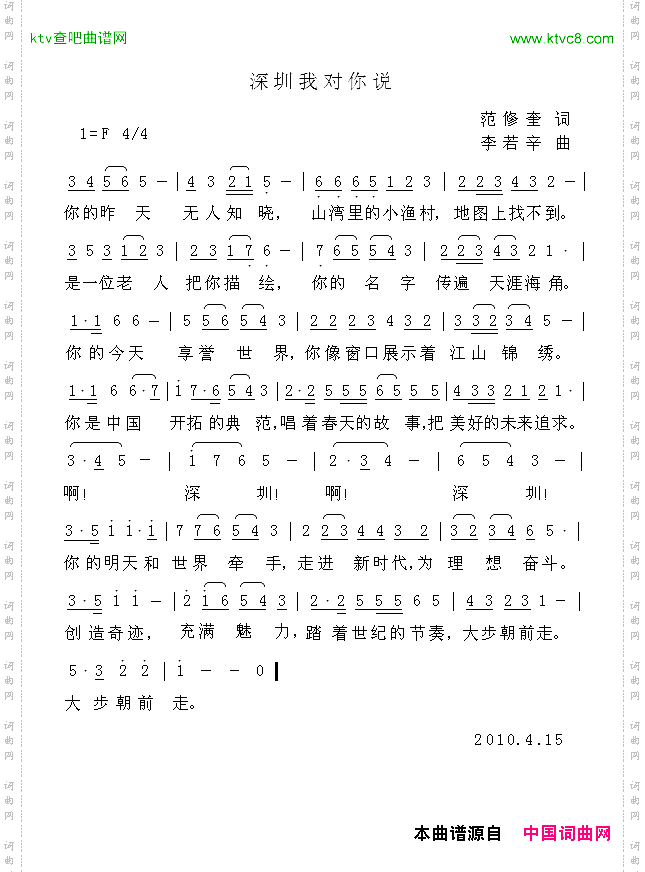 ktv查吧曲谱网 www.ktvc8.com
深圳我对你说
范修奎 词
1=F 4/4
李若辛 曲
3 4 5 6 5 - | 4 3 2 1 5 - | 6 6 6 5 1 2 3 | 2 2 3 4 3 2 - |
你的昨 天 无人知 晓, 山湾里的小渔村, 地图上找不到。
3 5 3 1 2 3 | 2 3 1 7 6 - | 7 6 5 5 4 3 | 2 2 3 4 3 2 1 · |
是一位老 人 把你描 绘, 你的 名 字 传遍 天涯海角。
1 · 1 6 6 - | 5 5 6 5 4 3 | 2 2 2 3 4 3 2 | 3 3 2 3 4 5 - |
你的今天 享誉 世 界, 你像窗口展示着 江山 锦 绣。
1 · 1 6 6 · 7 | 1 7 · 6 5 4 3 | 2 · 2 5 5 5 6 5 5 | 4 3 3 2 1 2 1 · |
你是中国 开拓的典 范,唱着春天的故 事,把美好的未来追求。
3 · 4 5 - | 1 7 6 5 - | 2 · 3 4 - | 6 5 4 3 - |
啊! 深 圳! 啊! 深 圳!
3 · 5 1 1 · 1 | 7 7 6 5 4 3 | 2 2 3 4 4 3 2 | 3 2 3 4 6 5 · |
你的明天和 世界 牵 手, 走进 新时代,为 理 想 奋斗。
3 · 5 1 1 - | 2 1 6 5 4 3 | 2 · 2 5 5 5 6 5 | 4 3 2 3 1 - |
创造奇迹, 充满 魅 力,踏着世纪的节奏, 大步朝前走。
5 · 3 2 2 | 1 - - 0 ‖
大步朝前 走。
2010.4.15
本曲谱源自 中国词曲网
词曲网